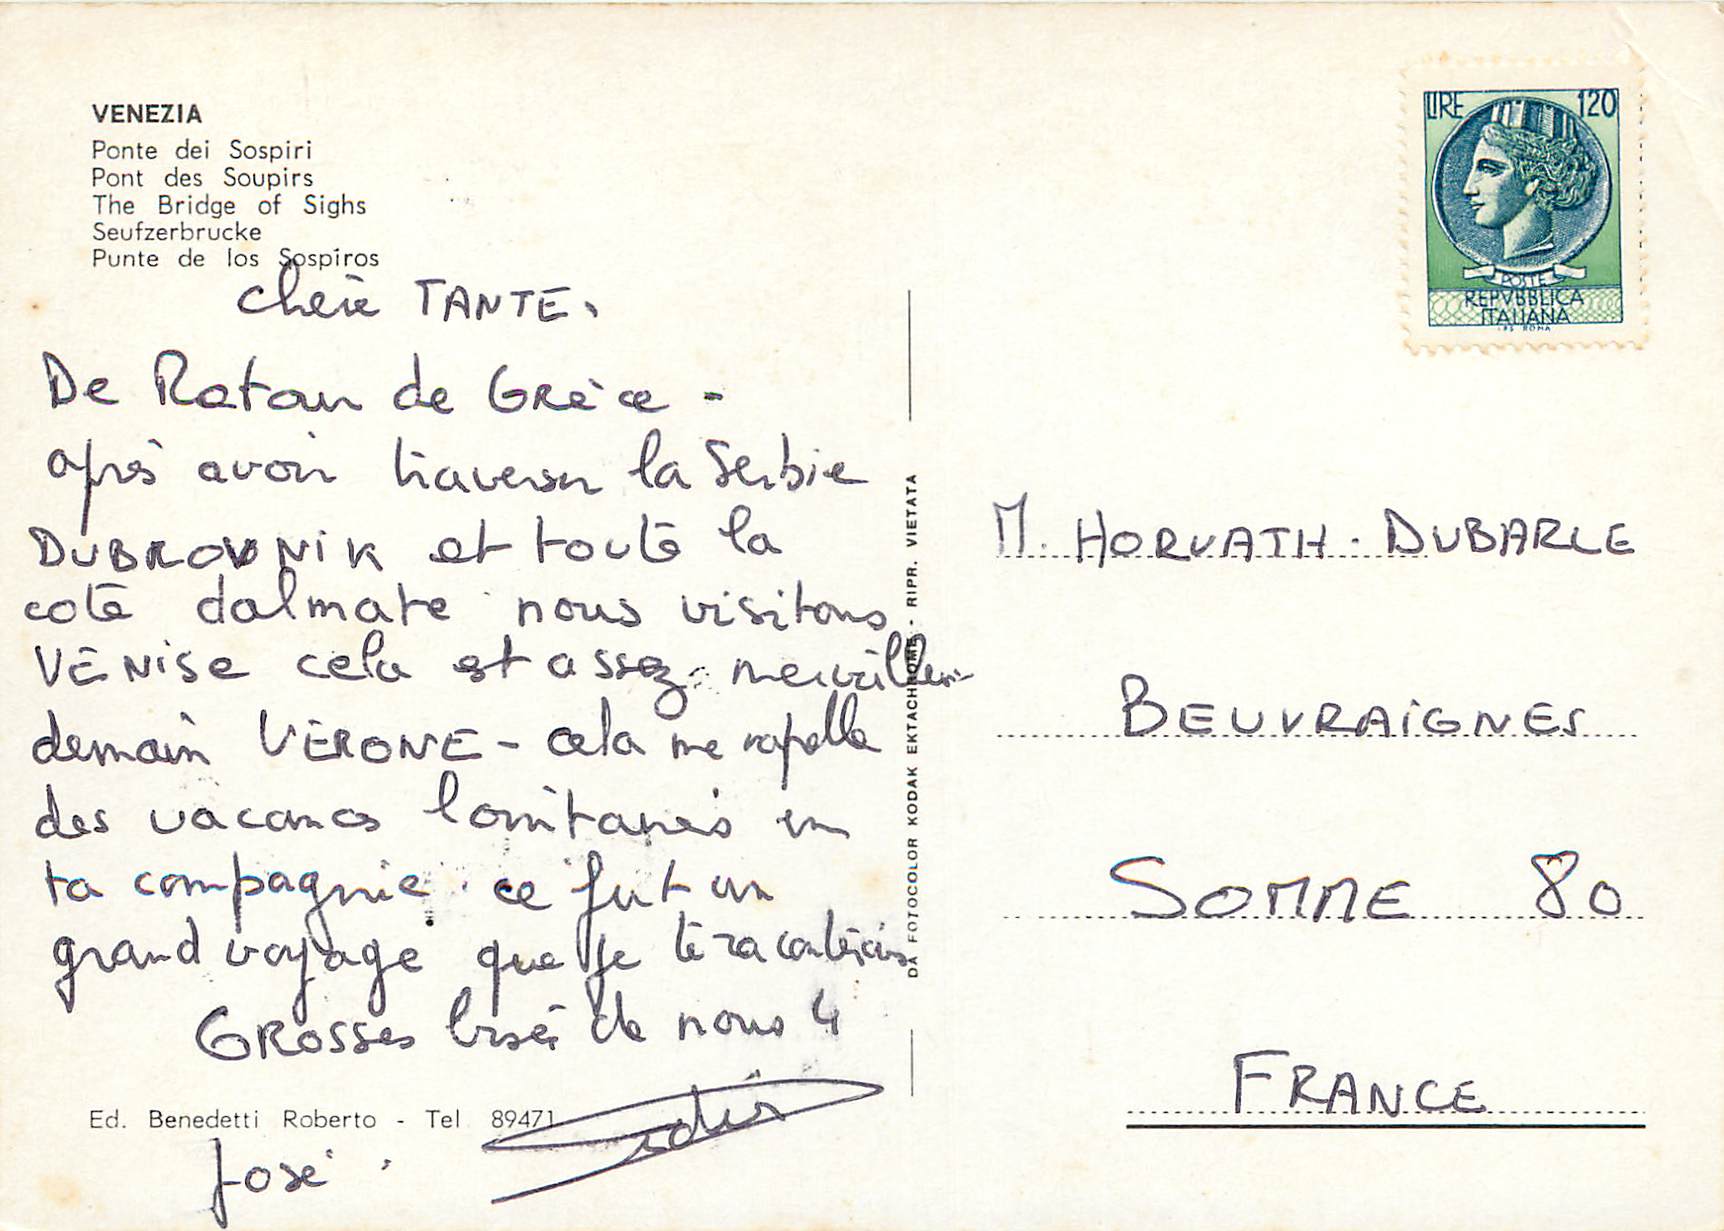 VENEZIA
Ponte dei Sospiri
Pont des Soupirs
The Bridge of Sighs
Seufzerbrucke
Punte de los Sospiros
Chère TANTE.
De Retour de Grèce -
après avoir traverser la Serbie
DUBROVNIK et toute la
cote dalmate nous visitons
VENISE cela est assez merveilleux
demain VÉRONE - cela me rapelle
des vacances lointaines en
ta compagnie. ce fut un
grand voyage que je te raconterais
GROSSES bises de nous 4
José.
Ed. Benedetti Roberto - Tel 89471
DA FOTOCOLOR KODAK EKTACHROME - RIPR. VIETATA
LIRE 120
POSTE
REPVBBLICA
ITALIANA
I.P.S. ROMA
M. HORVATH - DUBARLE
BEUVRAIGNES
SOMME 80
FRANCE